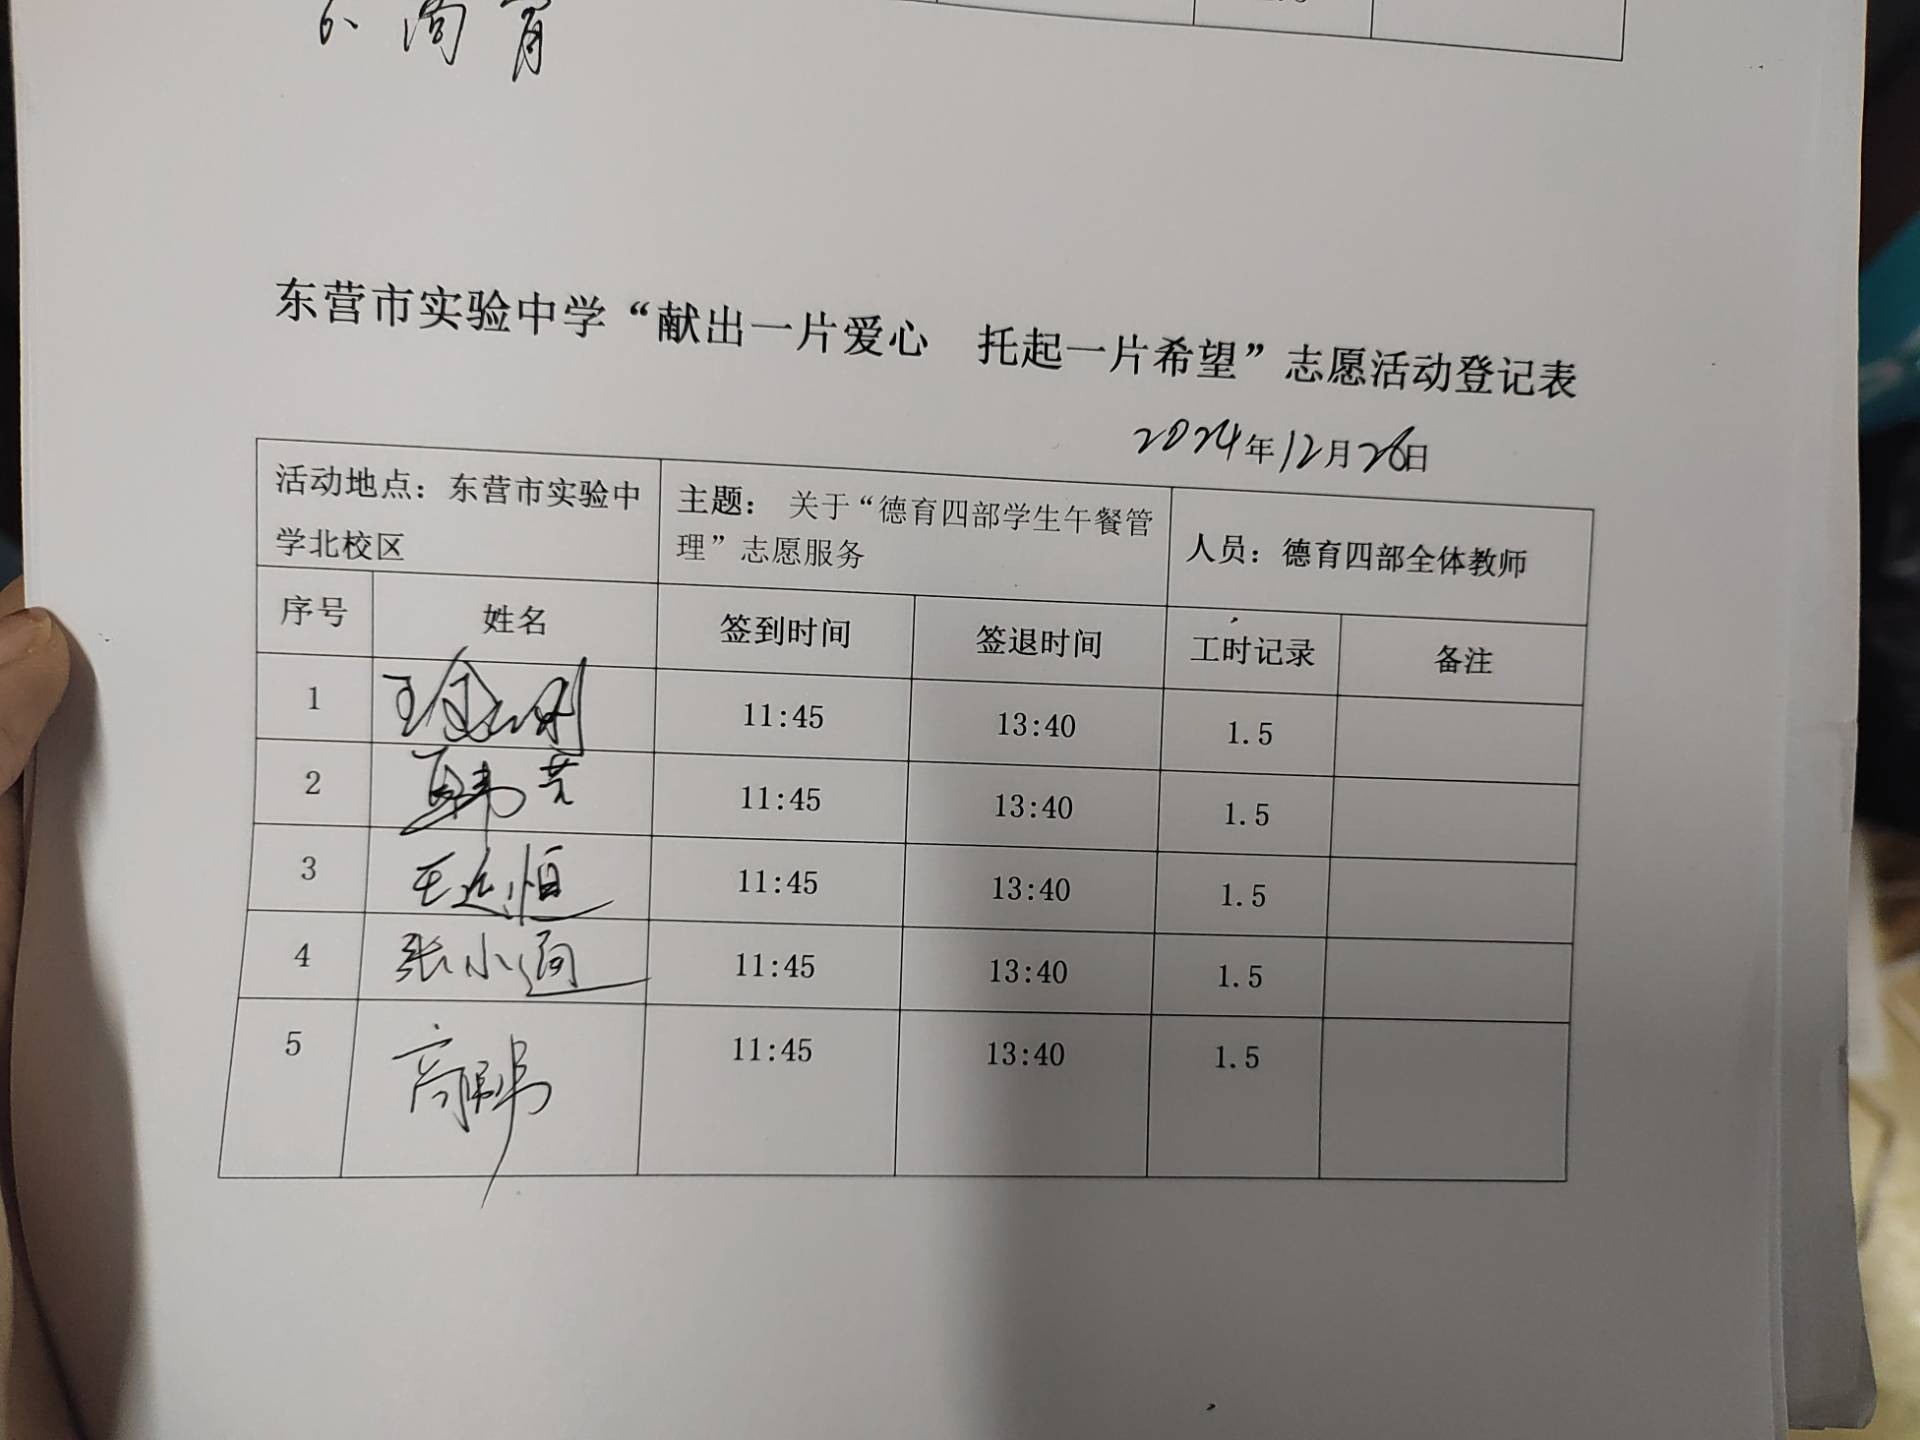 东营市实验中学“献出一片爱心 托起一片希望”志愿活动登记表
2024年12月26日
活动地点：东营市实验中学北校区 主题：关于“德育四部学生午餐管理”志愿服务 人员：德育四部全体教师
序号 姓名 签到时间 签退时间 工时记录 备注
1 11:45 13:40 1.5
2 11:45 13:40 1.5
3 11:45 13:40 1.5
4 张小 11:45 13:40 1.5
5 11:45 13:40 1.5